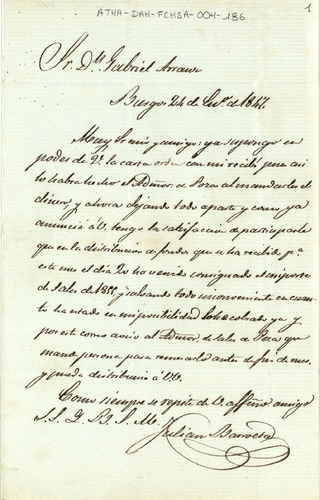 ATHA-DAH-FCHSA-004-186
1
Sr. Dn. Gabriel
Burgos 24 de de 1847.
Muy Sr. mio y amigo: ya supongo en
poder de V. la carta orden con mi recibi pues asi
lo habra hecho el Admor. de Poza al mandarles el
dinero, y ahora dejando todo aparte y como ya
anuncié á V. tengo la satisfaccion de participarle
que en la distribucion de fondos que se ha recibido pa.
este mes el dia 20 ha venido consignado el importe
de sales de y salvando todo inconveniente en cuan
to ha estado en mi posibilidad lo he cobrado ya y
por este correo aviso al Admor. de sales de Poza que
mande persona para remesarlo antes de fin de mes,
y pueda distribuirlo á VV.
Como siempre se repite de V. affmo. amigo
S. S. Q. B. S. M.
Julian